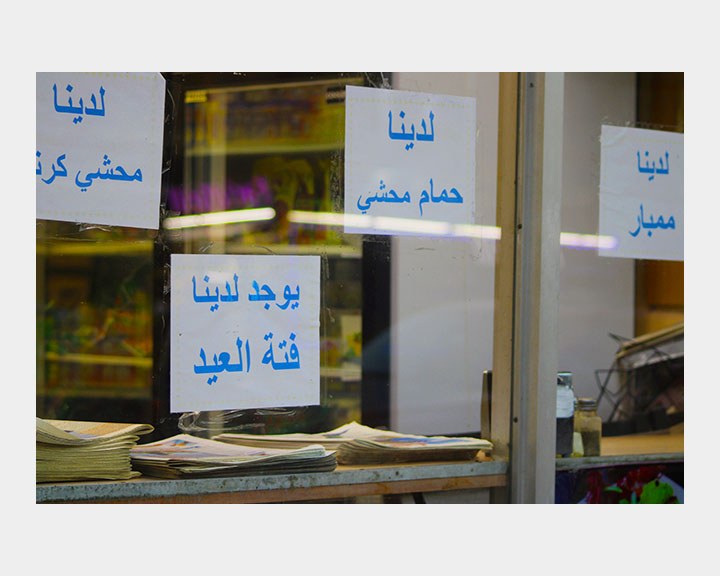 لدينا
ممبار
لدينا
حمام محشي
لدينا
محشي كرنـ
يوجد لدينا
فتة العيد